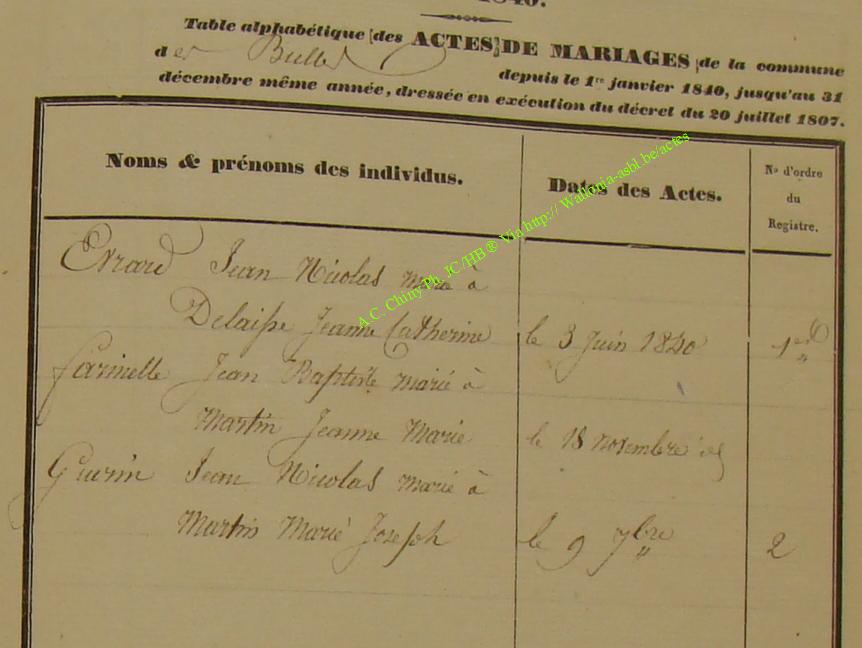 1840.
Table alphabétique des ACTES DE MARIAGES de la commune
des Bulles depuis le 1re janvier 1840, jusqu'au 31
décembre même année, dressée en exécution du décret du 20 juillet 1807.
Noms & prénoms des individus.
Dates des Actes.
No d'ordre
du
Registre.
Evrard Jean Nicolas marié à
Delaisse Jeanne Catherine le 3 Juin 1840 1er
farinelle Jean Baptiste marié à
Martin Jeanne Marie le 18 novembre id
Guerin Jean Nicolas marié à
Martin Marie Joseph le 9 7bre 2
A.C. Chiny Ph. JC/HB® Via http:// Wallonia-asbl.be/actes